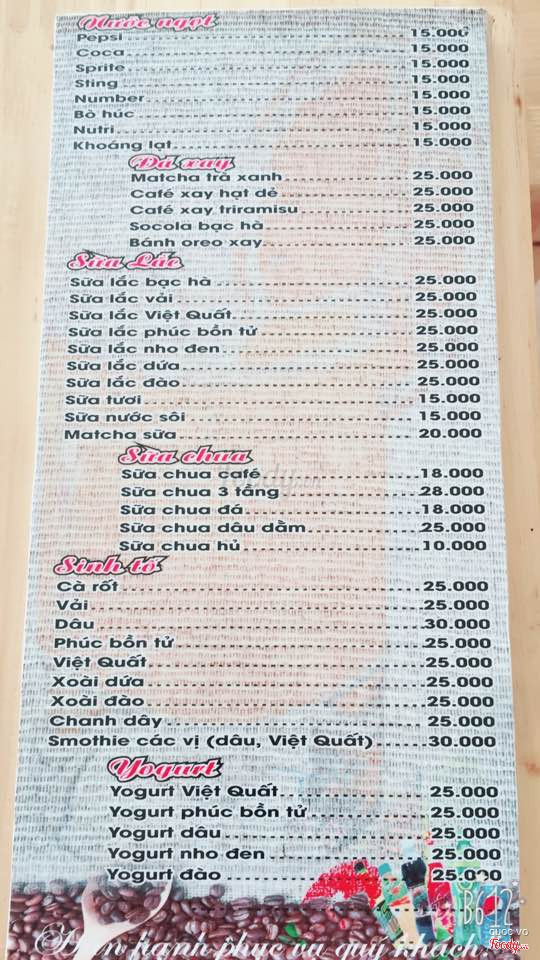 Nước ngọt
Pepsi 15.000
Coca 15.000
Sprite 15.000
Sting 15.000
Number 15.000
Bò húc 15.000
Nutri 15.000
Khoáng lạt 15.000
Đá xay
Matcha trà xanh 25.000
Café xay hạt dẻ 25.000
Café xay triramisu 25.000
Socola bạc hà 25.000
Bánh oreo xay 25.000
Sữa Lắc
Sữa lắc bạc hà 25.000
Sữa lắc vải 25.000
Sữa lắc Việt Quất 25.000
Sữa lắc phúc bồn tử 25.000
Sữa lắc nho đen 25.000
Sữa lắc dứa 25.000
Sữa lắc đào 25.000
Sữa tươi 15.000
Sữa nước sôi 15.000
Matcha sữa 20.000
Sữa chua
Sữa chua café 18.000
Sữa chua 3 tầng 28.000
Sữa chua đá 18.000
Sữa chua dâu dằm 25.000
Sữa chua hủ 10.000
Sinh tố
Cà rốt 25.000
Vải 25.000
Dâu 30.000
Phúc bồn tử 25.000
Việt Quất 25.000
Xoài dứa 25.000
Xoài đào 25.000
Chanh dây 25.000
Smothie các vị (dâu, Việt Quất) 30.000
Yogurt
Yogurt Việt Quất 25.000
Yogurt phúc bồn tử 25.000
Yogurt dâu 25.000
Yogurt nho đen 25.000
Yogurt đào 25.000
hạnh phục vụ quý khách
Foody.vn